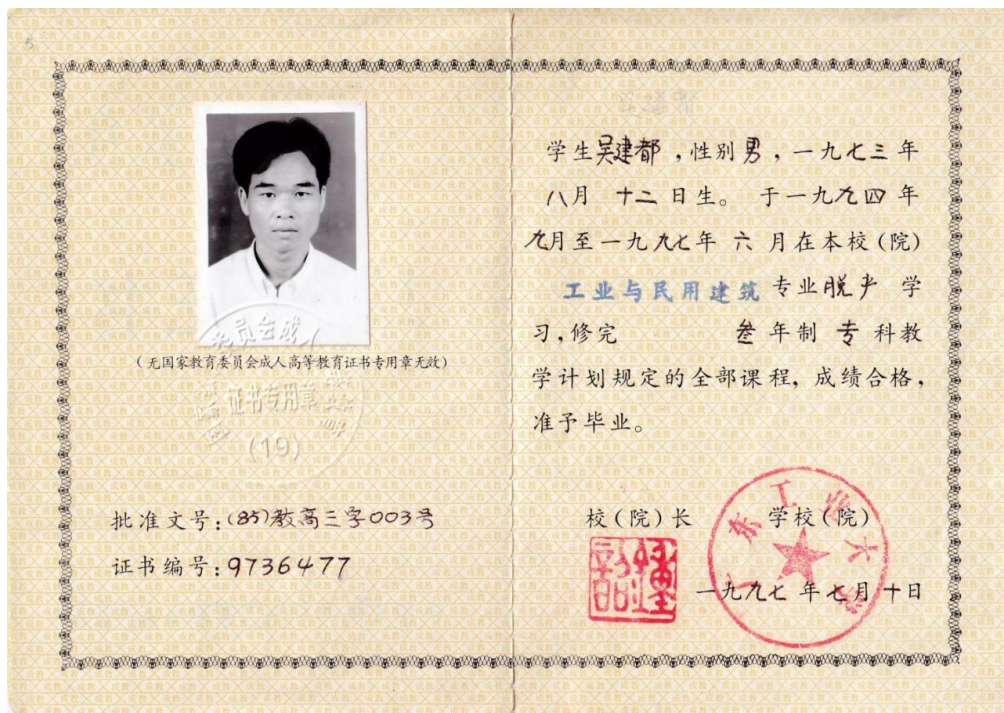 5
(无国家教育委员会成人高等教育证书专用章无效)
证书专用章
(19)
批准文号:(85)教高三字003号
证书编号:9736477
学生吴建都,性别男,一九七三年
八月 十二 日生。于一九九四年
九月至一九九七年 六 月在本校(院)
工业与民用建筑 专业脱产 学
习,修完 叁 年制 专 科教
学计划规定的全部课程,成绩合格,
准予毕业。
校(院)长 学校(院)
广东工业大学
一九九七 年 七月 十日